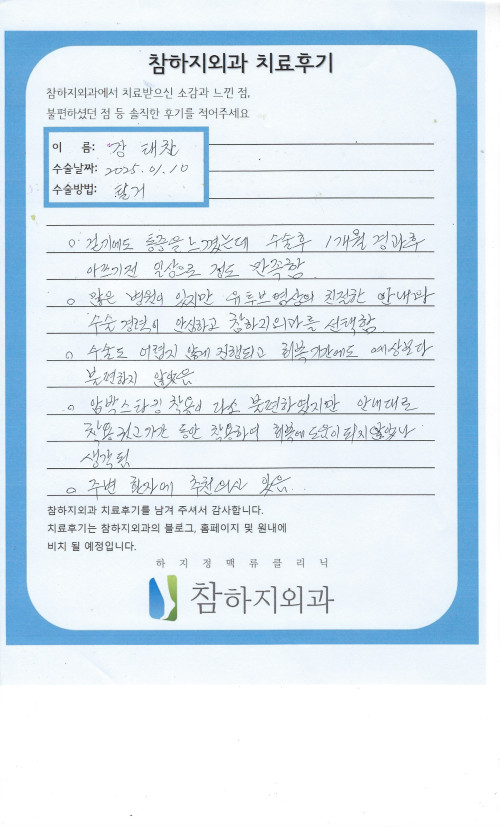 참하지외과 치료후기
참하지외과에서 치료받으신 소감과 느낀 점,
불편하셨던 점 등 솔직한 후기를 적어주세요
이 름: 강 태찬
수술날짜: 2025. 01. 10
수술방법: 발거
○ 걷기에도 통증을 느꼈는데 수술후 1개월 경과후
아프기전 일상으로 정도 만족함.
○ 많은 병원이 있지만 유튜브영상의 친절한 안내과
수술 경력이 안심하고 참하지외과를 선택함.
○ 수술도 어렵지 않게 진행되고 회복기간에도 예상보다
불편하지 않았음
○ 압박스타킹 착용이 다소 불편하였지만 안내대로
착용권고기간 동안 착용하여 회복에 도움이 되지않았나
생각됨
○ 주변 환자에 추천의사 있음.
참하지외과 치료후기를 남겨 주셔서 감사합니다.
치료후기는 참하지외과의 블로그, 홈페이지 및 원내에
비치 될 예정입니다.
하지정맥류클리닉
참하지외과